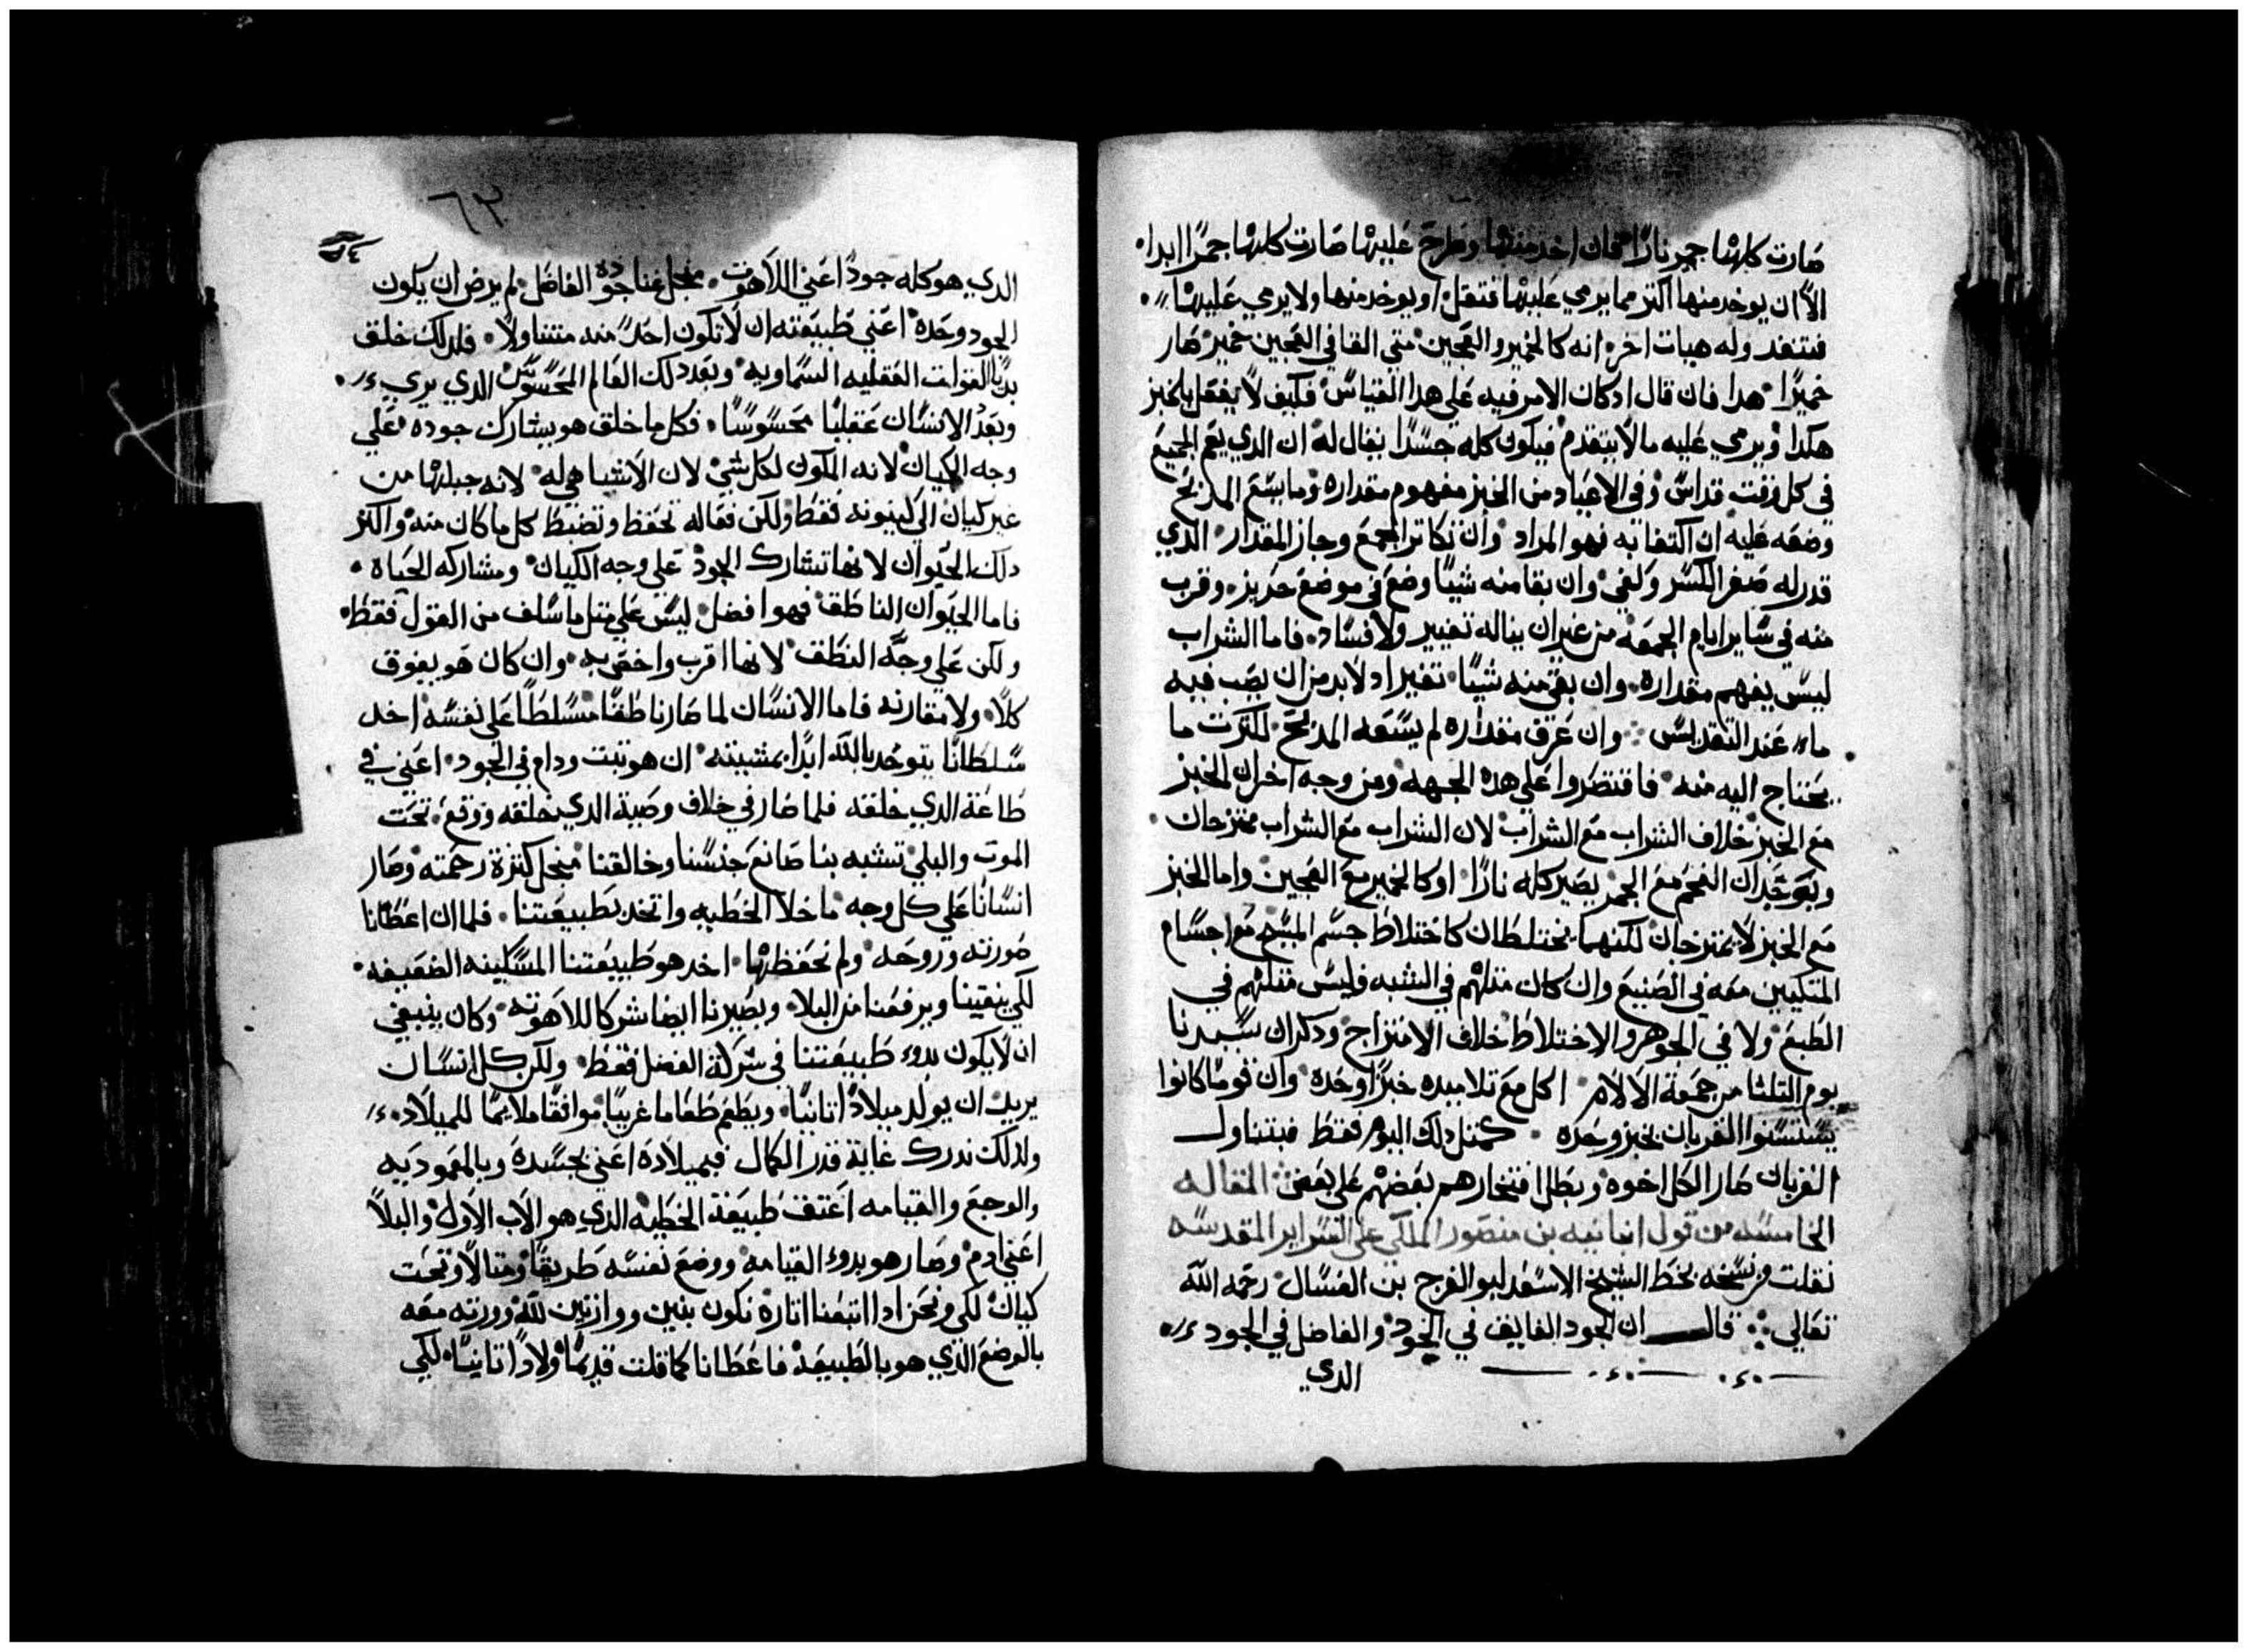 صارت كلها جمر نارًا فان اخد منها وطرح عليها صارت كلها جمرًا ابدا
الا ان يوخد منها اكتر مما يرمي عليها فتقل او يوخد منها ولا يرمي عليها
فتنفد وله هبات اخر انه كالخمير والعجين متي القا في العجين خمير صار
خميرًا هدا فان قال ادكان الامر فيه علي هدا القياس فكيف لا يفعل بالخبز
هكدا ويرمي عليه ما لا يتقدم فيكون كله جسدًا يقال له ان الدي يعم الجميع
في كل وقت قداس وفي الاعياد من الخبز مفهوم مقداره وما يسع المدبح
وضعه عليه ان اكتفا به فهو المراد وان تكاتر الجمع وجاز المقدار الدي
قدر له صغر الكسر وكفي وان بقا منه شيًا وضع في موضع حريز وقرب
منه في ساير ايام الجمعه من غير ان يناله تغيير ولا فساد فاما الشراب
ليس يفهم مقداره وان بقي منه شيًا تغير اد لا بد من ان يصب فيه
ماء عند التقديس وان عرف مقداره لم يسعه المدبح لكترت ما
يحتاج اليه منه فاقتصروا علي هده الجهه ومن وجه اخر ان الخبز
مع الخبز خلاف الشراب مع الشراب لان الشراب مع الشراب ممتزجان
ويوجد ان الفحم مع الجمر يصير كله نارًا او كالخمير مع العجين واما الخبز
مع الخبز لا يمتزجان لكنهما يختلطان كاختلاط جسم المسيح مع اجسام
المتكيين معه في الصنيع وان كان متلهم في الشبه وليس متلهم في
الطبع ولا في الجوهر والاختلاط خلاف الامتزاج ودكر ان سيدنا
يوم التلتا من جمعة الالام اكل مع تلاميده خبزًا وحده وان قومًا كانوا
يستسنوا القربان بخبز وحده كمتل دلك اليوم فقط فيتناول
القربان صار الكل اخوه وبطل افتخارهم بعضهم علي بعض المقاله
الخامسه من قول انبا نيه بن منصور الملكي علي السراير المقدسه
نقلت من نسخه بخط الشيخ الاسعد ابو الفرج بن العسال رحمه الله
تعالي قال ان الجود الفايف في الجود والفاضل في الجود
الدي
٦٣
الدي هو كله جود اعني اللاهوت مجل غنا جوده الفاضل لم يرض ان يكون
الجود وحده اعني طبيعته ان لا تكون احد منه متناولًا فلدلك خلق
بديًا القوات العقليه السماويه وبعد دلك العالم المحسوس الدي يري
وبعد الانسان عقليًا محسوسًا فكل ما خلق هو يشارك جوده علي
وجه الكيان لانه المكون لكل شي لان الاشيا هي له لانه جبلها من
غير كيان الي كينونه فقط ولكن فعاله تحفظ وتضبط كل ما كان منه واكتر
دلك الحيوان لانها تشارك الجود علي وجه الكيان ومشاركه الحياة
فاما الحيوان الناطق فهو افضل ليس علي متل ما سلف من القول فقط
ولكن علي وجه النطق لانها اقرب واخص به وان كان هو يفوق
كلًا ولا مقارنه فاما الانسان لما صار ناطقًا مسلطًا علي نفسه اخد
سلطانًا يتوحد بالله ابدًا بمشيته ان هو تبت ودام في الجود اعني في
طاعة الدي خلقه فلما صار في خلاف وصية الدي خلقه ووقع تحت
الموت والبلي تشبه بنا صانع جنسنا وخالقنا مجل كترة رحمته وصار
انسانًا علي كل وجه ما خلا الخطيه واتحد بطبيعتنا فلما ان اعطانا
صورته وروحه ولم نحفظها اخد هو طبيعتنا المسكينه الضعيفه
لكي ينقينا ويرفعنا من البلا ويصيرنا ايضا شركا للاهوته وكان ينبغي
ان لا يكون بدوء طبيعتنا في شركة الفضل فقط ولكن كل انسان
يريد ان يولد ميلادًا تانيًا ويطعم طعاما غريبًا موافقًا ملايمًا للميلاد
ولدلك ندرك غاية قدر الكمال فبميلاده اعني بجسده وبالمعموديه
والوجع والقيامه اعتق طبيعة الخطيه الدي هو الاب الاول والبلا
اعني ادم وصار هو بدوء القيامه ووضع نفسه طريقًا ومتالًا وتحت
كيان لكي ونحن ادا اتبعنا اتاره نكون بنين ووارتين لله وورته معه
بالوضع الدي هو بالطبيعه فاعطانا كما قلت قديمًا ولادًا تانيًا لكي